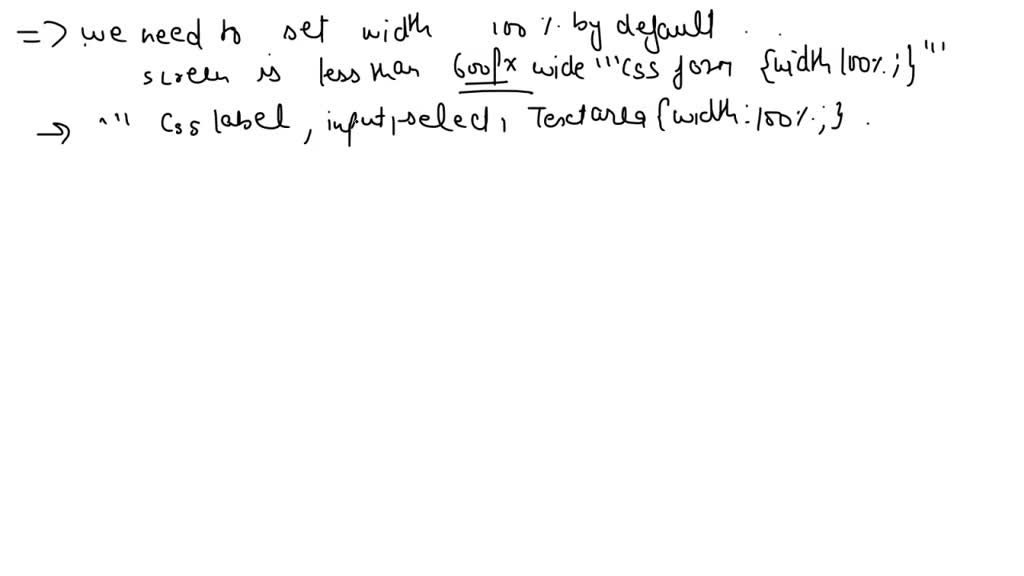 => we need to set width 100% by default.
screen is less than 600px wide '''css form {width 100%;}'''
→ ''' Css label, input, select, Textarea {width: 100%;}.